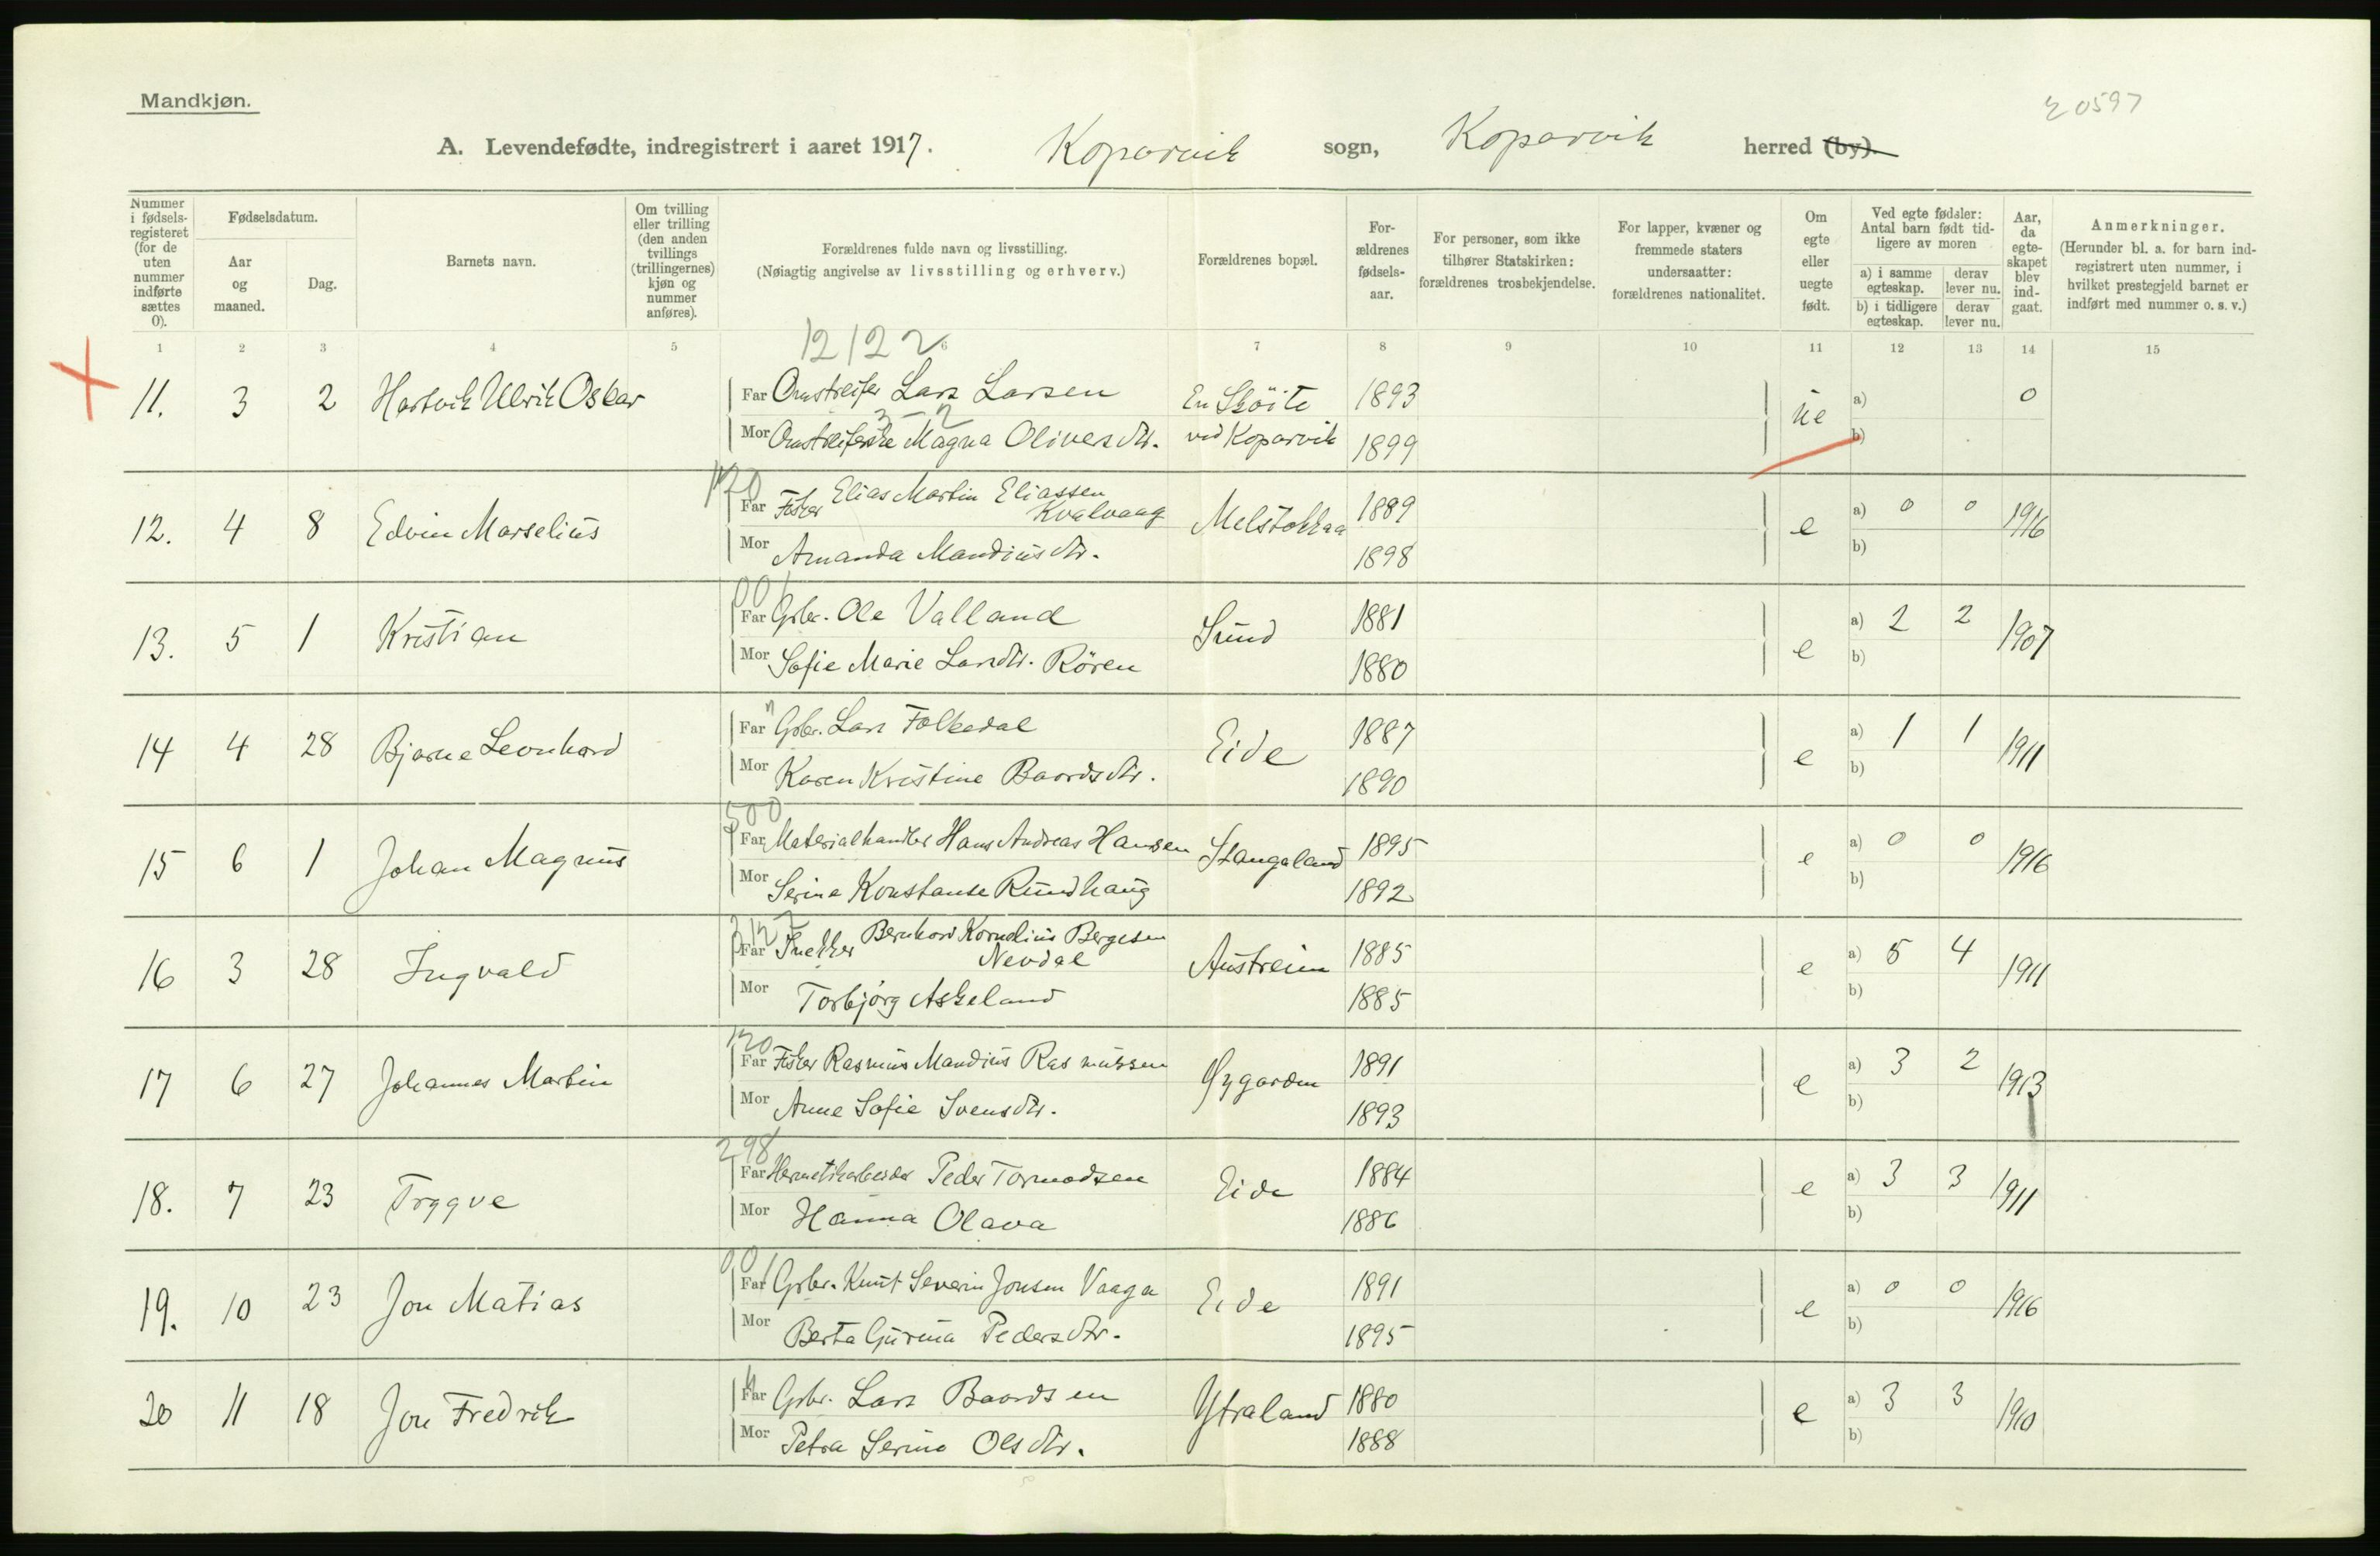 Mandkjøn.
20597
A. Levendefødte, indregistrert i aaret 1917. Kopervik sogn, Kopervik herred (by).
Nummer i fødsels-registeret (for de uten nummer indførte sættes 0).
Fødselsdatum.
Aar og maaned.
Dag.
Barnets navn.
Om tvilling eller trilling (den anden tvillings (trillingernes) kjøn og nummer anføres).
Forældrenes fulde navn og livsstilling.
(Nøiagtig angivelse av livsstilling og erhverv.)
Forældrenes bopæl.
For-ældrenes fødsels-aar.
For personer, som ikke tilhører Statskirken: forældrenes trosbekjendelse.
For lapper, kvæner og fremmede staters undersaatter: forældrenes nationalitet.
Om egte eller uegte født.
Ved egte fødsler: Antal barn født tid-ligere av moren
a) i samme egteskap. derav lever nu.
b) i tidligere egteskap. derav lever nu.
Aar, da egte-skapet blev ind-gaat.
Anmerkninger.
(Herunder bl. a. for barn ind-registrert uten nummer, i hvilket prestegjeld barnet er indført med nummer o. s. v.)
1 2 3 4 5 6 7 8 9 10 11 12 13 14 15
12122
11. 3 2 Hartvik Ulrik Oskar Far Omstreifer Lars Larsen En Skøite 1893 ue a) 0
3-2
Mor Omstreiferske Magna Olivesdtr. ved Kopervik 1899 b)
120
12. 4 8 Edvin Marselius Far Fisker Elias Martin Eliassen Kvalvaag Melstokkaa 1889 e a) 0 0 1916
Mor Amanda Mandiusdtr. 1898 b)
001
13. 5 1 Kristian Far Gbr. Ole Valland Sund 1881 e a) 2 2 1907
Mor Sofie Marie Larsdtr. Røren 1880 b)
14 4 28 Bjarne Leonhard Far Gbr. Lars Folkedal Eide 1887 e a) 1 1 1911
Mor Karen Kristine Baardsdtr. 1890 b)
500
15 6 1 Johan Magnus Far Materialhandler Hans Andreas Hansen Stangeland 1895 e a) 0 0 1916
Mor Serine Konstanse Rundhaug 1892 b)
16 3 28 Ingvald Far Snekker Bernhard Kornelius Bergesen Nevdal Austreim 1885 e a) 5 4 1911
Mor Torbjørg Askeland 1885 b)
120
17 6 27 Johannes Martin Far Fisker Rasmus Mandius Rasmussen Øygarden 1891 e a) 3 2 1913
Mor Anne Sofie Svensdtr. 1893 b)
298
18. 7 23 Trygve Far Hermetikarbeider Peder Tormodsen Eide 1884 e a) 3 3 1911
Mor Hanna Olava 1886 b)
001
19. 10 23 Jon Matias Far Gbr. Knut Severin Jonsen Vaage Eide 1891 e a) 0 0 1916
Mor Berta Gurina Pedersdtr. 1895 b)
20 11 18 Jon Fredrik Far Gbr. Lars Baardsen Ytraland 1880 e a) 3 3 1910
Mor Petra Serine Olsdtr. 1888 b)